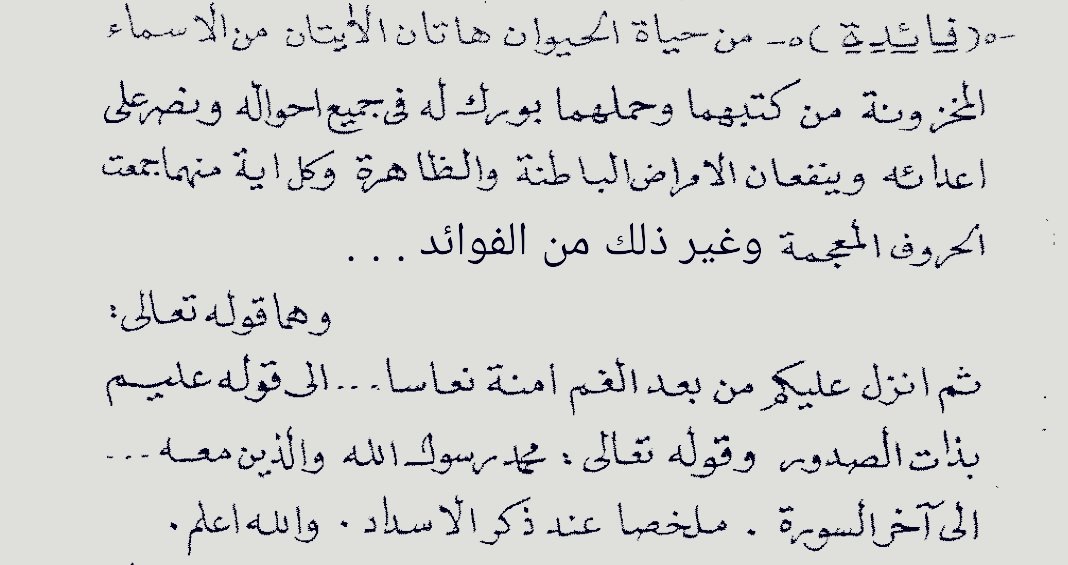 -٥( فائدة )٥- من حياة الحيوان هاتان الأيتان من الاسماء
المخزونة من كتبهما وحملهما بورك له فى جميع احواله ونصر على
اعدائه وينفعان الامراض الباطنة والظاهرة وكل اية منهما جمعت
الحروف المعجمة وغير ذلك من الفوائد ...
وهما قوله تعالى:
ثم انزل عليكم من بعد الغم امنة نعاسا ... الى قوله عليم
بذات الصدور وقوله تعالى : محمد رسول الله والذين معه ...
الى آخر السورة . ملخصا عند ذكر الاسداد . والله اعلم .